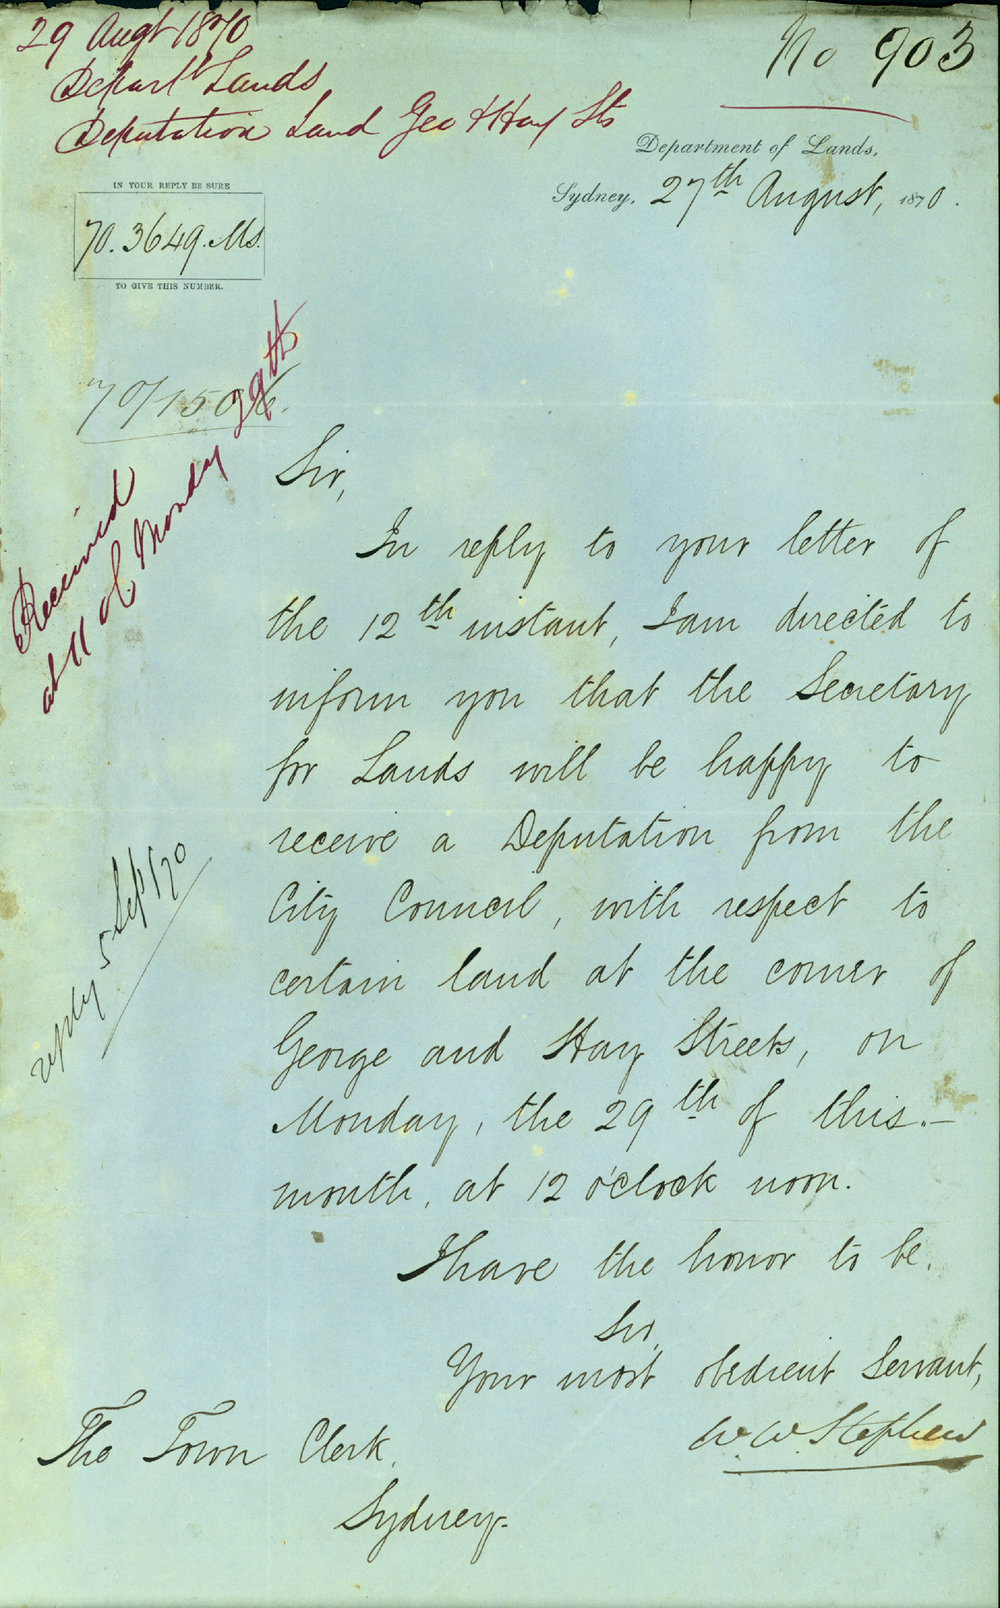 29 Augt 1870
Depart Lands
Deputation Land Geo & Hay Sts
No 903
Department of Lands,
Sydney, 27th August, 1870.
IN YOUR REPLY BE SURE
70.3649.Ms.
TO GIVE THIS NUMBER.
70/1506.
Received
at 11 of Monday 29th
Sir,
In reply to your letter of
the 12th instant, I am directed to
inform you that the Secretary
for Lands will be happy to
receive a Deputation from the
City Council, with respect to
certain land at the corner of
George and Hay Streets, on
Monday, the 29th of this.-
month, at 12 o'clock noon.
reply 5 Sept/70
I have the honor to be.
Sir,
Your most obedient Servant,
W. W. Stephen
The Town Clerk,
Sydney.